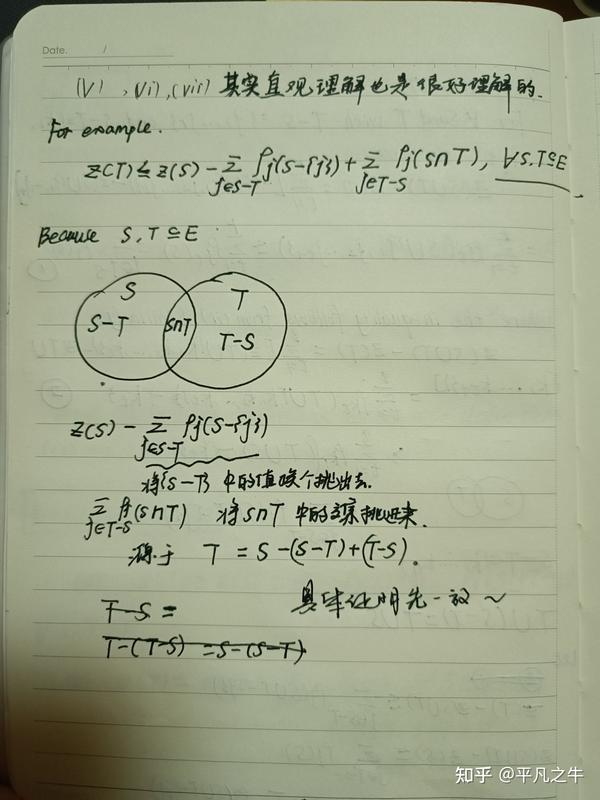 Date. /
(V), (vi), (vii) 其实直观理解也是很好理解的.
For example.
Z(T) ≤ Z(S) - Σ_{j∈S-T} ρj(S-{j}) + Σ_{j∈T-S} ρj(S∩T), ∀S,T⊆E
Because S, T ⊆ E
S
T
S-T
S∩T
T-S
Z(S) - Σ_{j∈S-T} ρj(S-{j})
将{S-T} 中的值挨个挑出去.
Σ_{j∈T-S} ρj(S∩T) 将S∩T 中的 挑进来.
源于 T = S-(S-T)+(T-S).
T-S =
具体证明先一放~
T-(T-S) = S-(S-T)
知乎 @平凡之牛